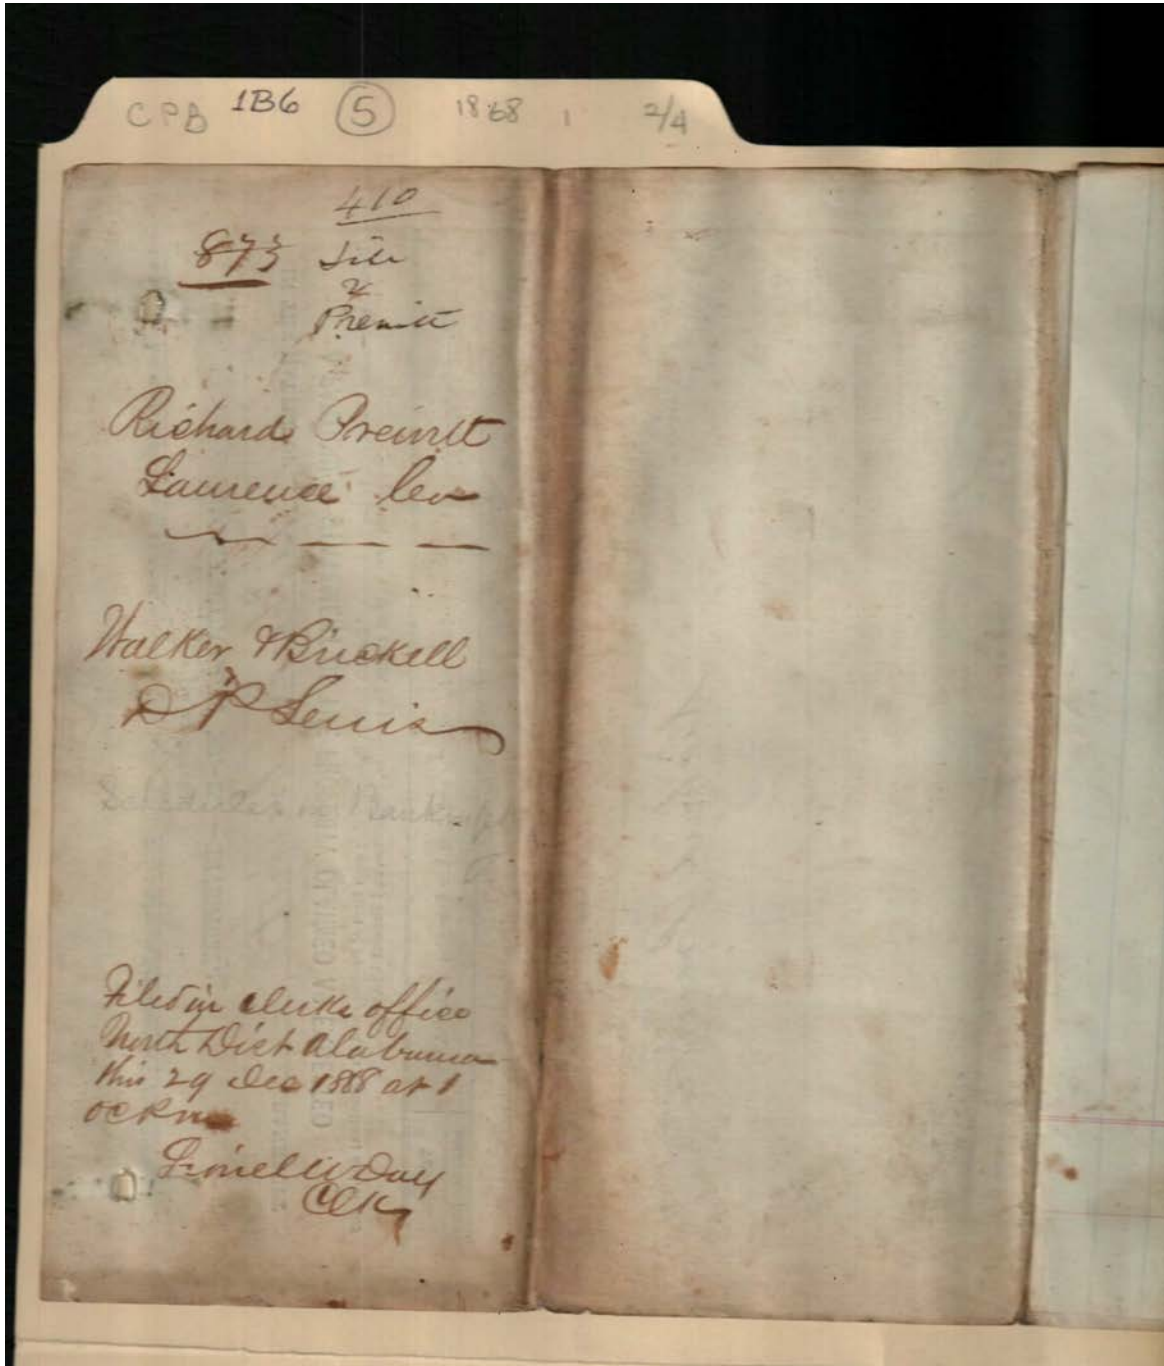 CPB 1B6 5 1868 1 2/4
410
873
&
Prewitt
Richard Prewitt
Laurence Co
Walker & Brickell
D P Lewis
Schedules in Bankrupt
Filed in clerks office
North Dist Alabama
this 29 Dec 1868 at 1
oc PM
Lionel W Day
Clk